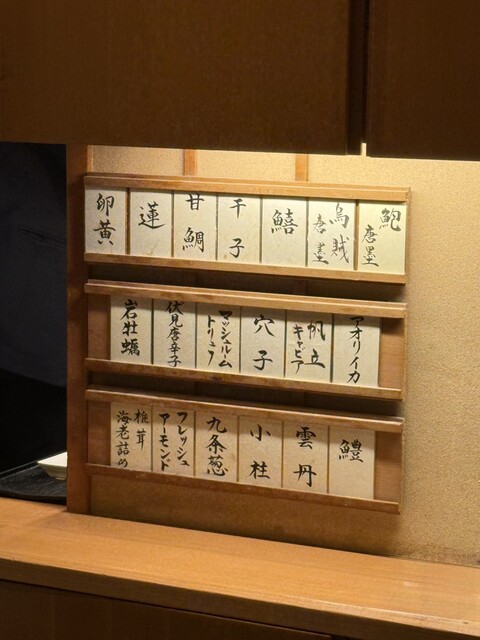 鮑
唐墨
烏賊
唐墨
鱚
干子
甘鯛
蓮
卵黄
アオリイカ
帆立
キャビア
穴子
マッシュルーム
トリュフ
伏見唐辛子
岩牡蠣
鱧
雲丹
小柱
九条葱
フレッシュ
アーモンド
椎茸
海老詰め